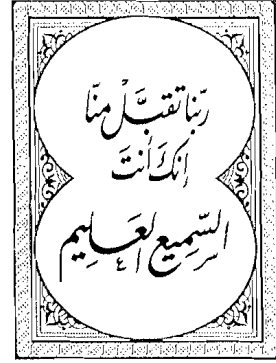 ربنا تقبَّلْ منّا
إنكَ أنتَ
السَّمِيع العَلِيم